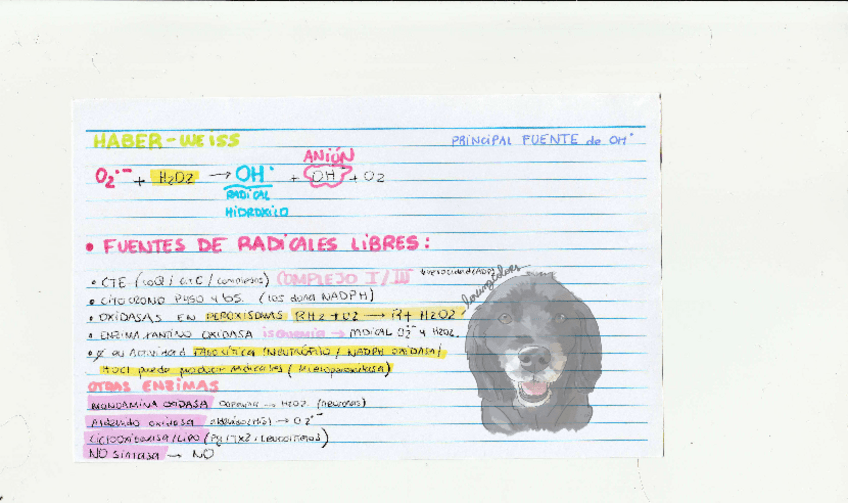 HABER-WEISS
PRINCIPAL FUENTE de OH•
ANIÓN
O2•- + H2O2 → OH• + OH- + O2
RADICAL
HIDROXILO
• FUENTES DE RADICALES LIBRES:
• CTE (CoQ / complejos) COMPLEJO I/III
• CITOCROMO P450 y b5. (los dona NADPH)
• OXIDASAS EN PEROXISOMAS RH2 + O2 → R + H2O2
• ENZIMA XANTINO OXIDASA isquemia → RADICAL O2•- y H2O2
actividad FAGOCÍTICA (NEUTRÓFILO / NADPH OXIDASA)
HOCl puede producir radicales (mieloperoxidasa)
OTRAS ENZIMAS
MONOAMINA OXIDASA Dopamina → H2O2 (neuronas)
Aldehído oxidasa → O2•-
CICLOOXIGENASA/LIPO
NO sintasa → NO